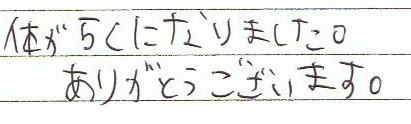 体がらくになりました。
ありがとうございます。